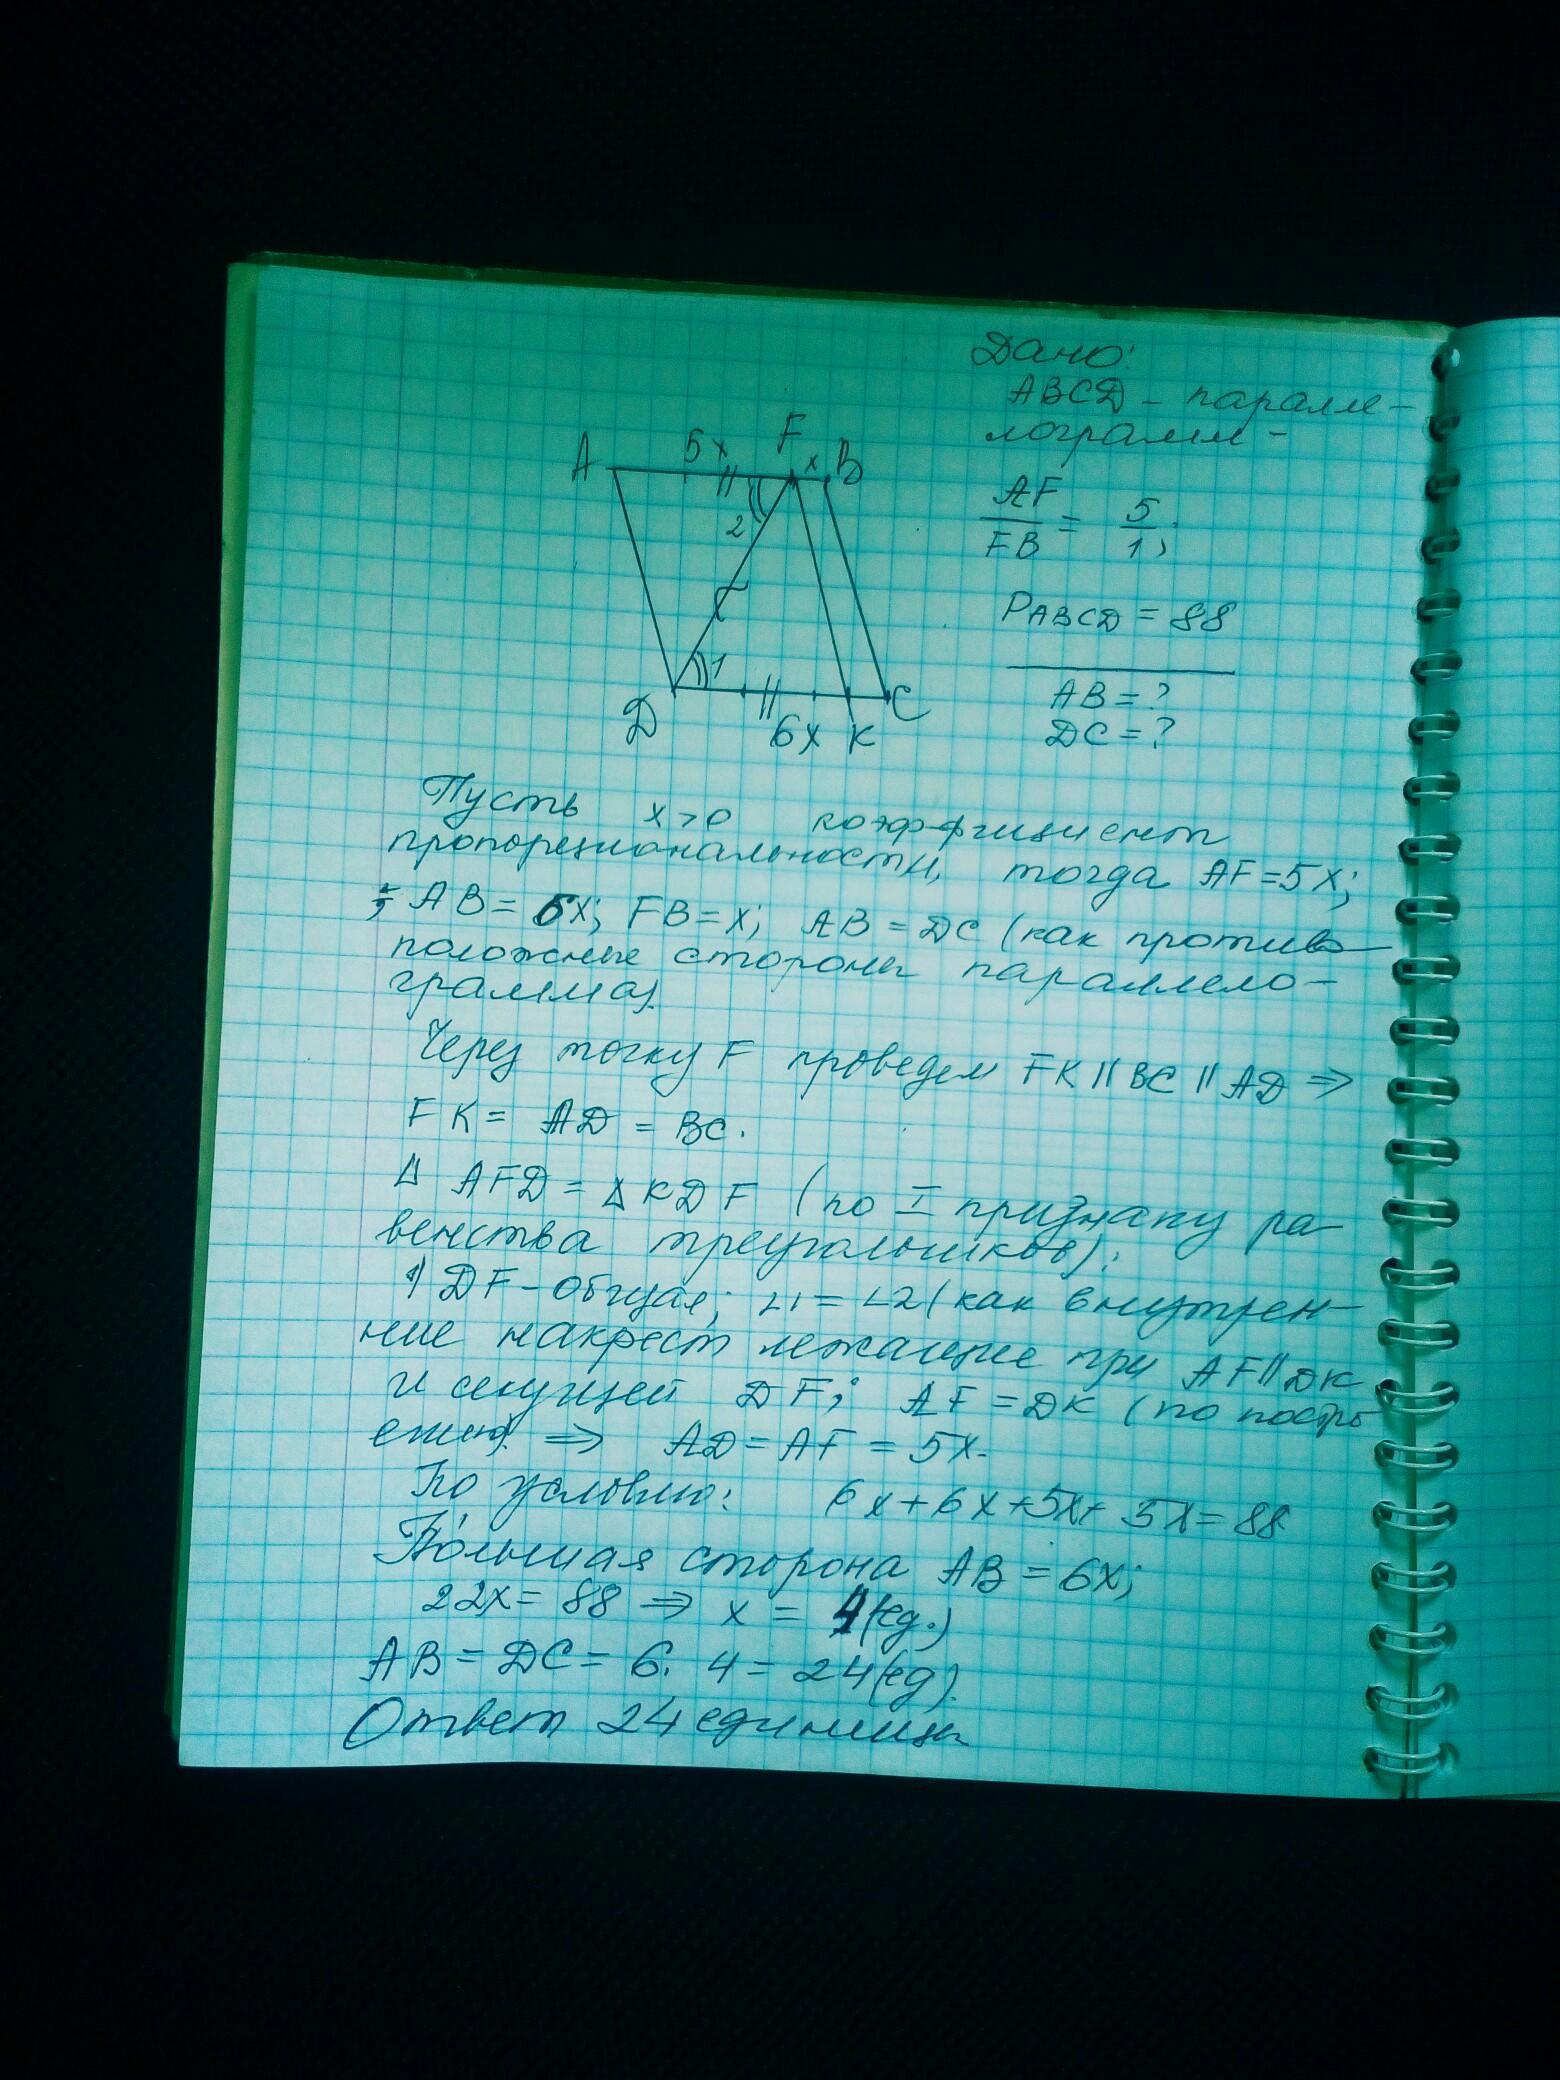 Дано:
ABCD - паралле-
лограмм -
A 5x F x B
AF/FB = 5/1;
2
P ABCD = 88
1
AB = ?
D 6x K C
DC = ?
Пусть x>0 коэффициент
пропорциональности, тогда AF=5x;
AB= 6x; FB=x; AB = DC (как противо-
положные стороны параллело-
грамма)
Через точку F проведем FK || BC || AD ⇒
FK = AD = BC.
Δ AFD = Δ KDF (по I признаку ра-
венства треугольников):
1) DF-общая; ∠1 = ∠2 (как внутрен-
ние накрест лежащие при AF||DK
и секущей DF; AF = DK (по постро
ению) ⇒ AD = AF = 5x.
По условию: 6x+6x+5x+5x=88
Большая сторона AB = 6x;
22x = 88 ⇒ x = 4(ед.)
AB = DC = 6 · 4 = 24(ед).
Ответ 24 единицы